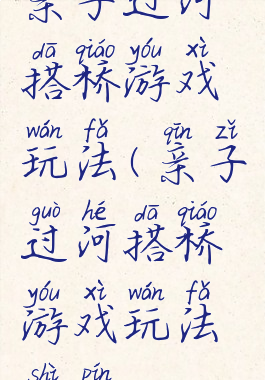 亲子过河
dā qiáo yóu xì
搭桥游戏
wán fǎ qīn zǐ
玩法(亲子
guò hé dā qiáo
过河搭桥
yóu xì wán fǎ
游戏玩法
shì pín